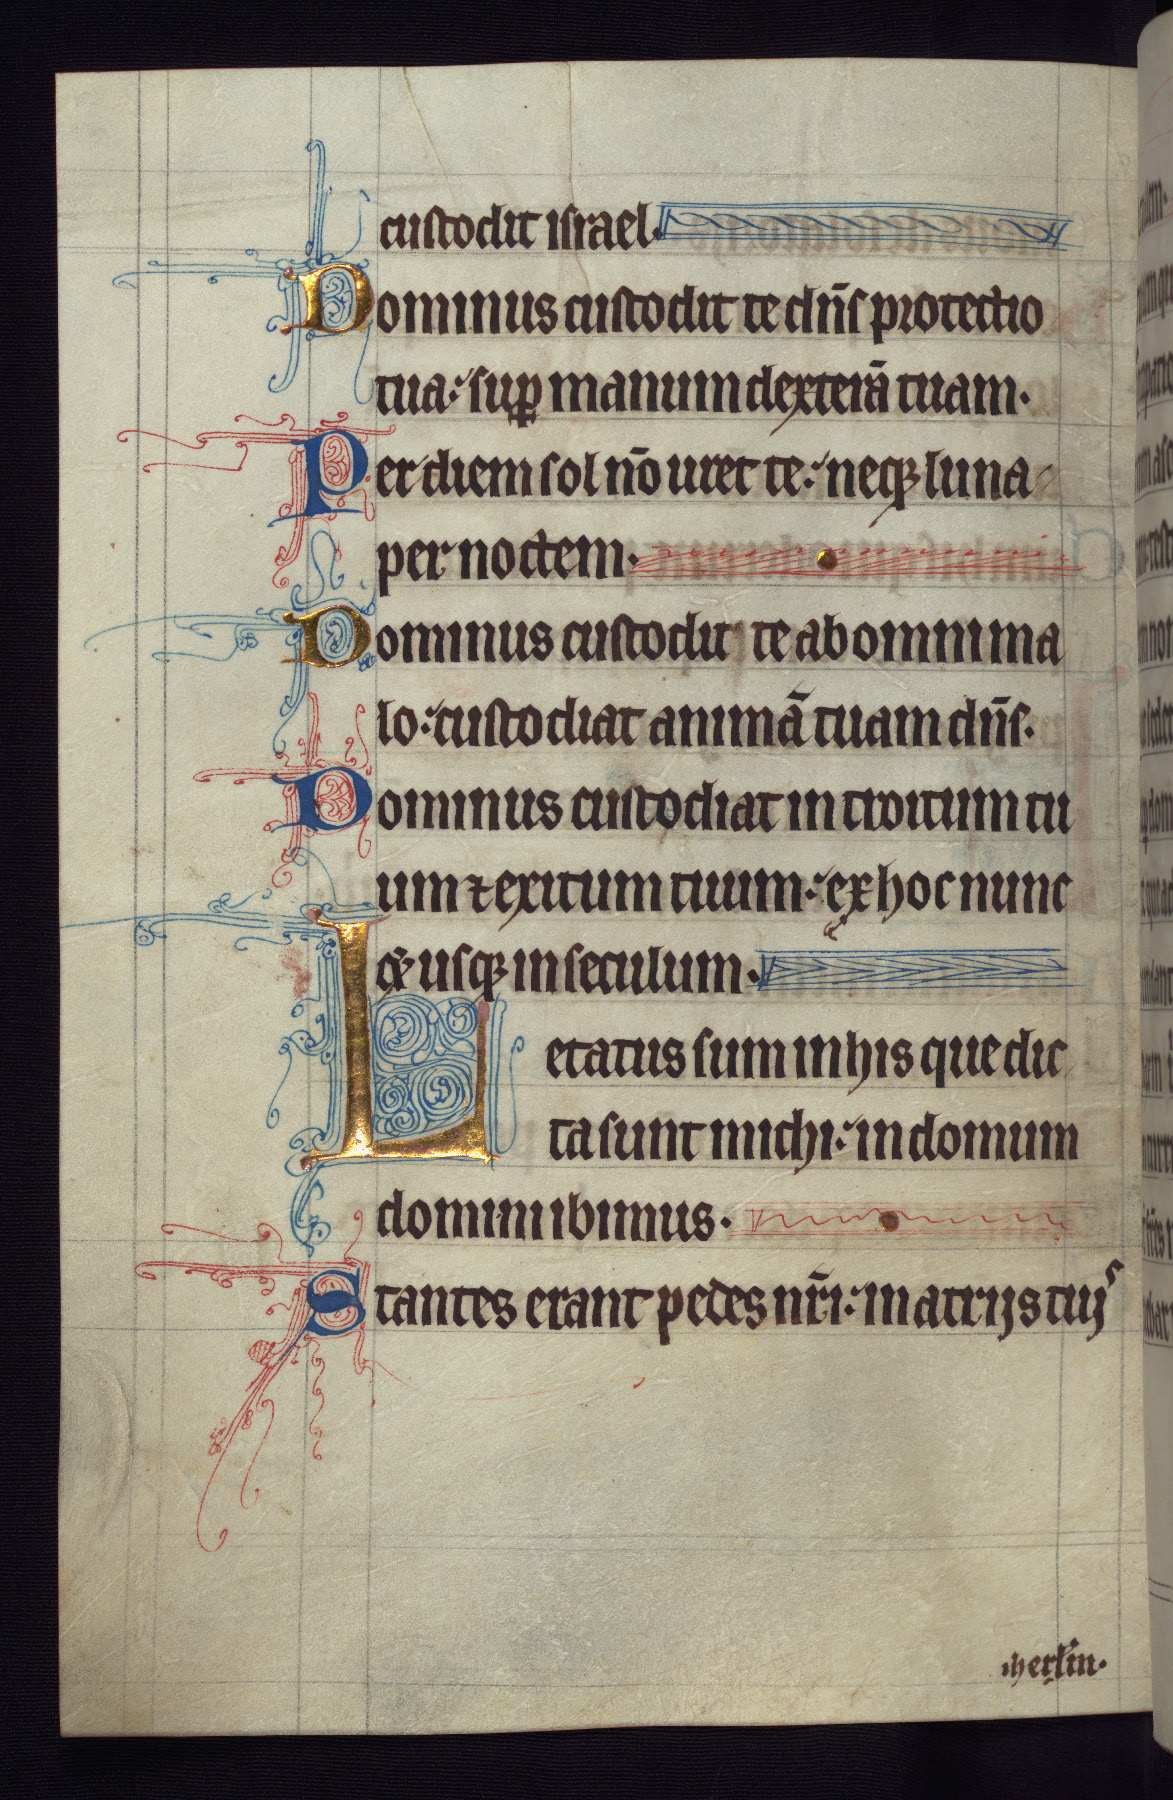 custodit israel.
Dominus custodit te dn̄s protectio
tua: sup manum dexterā tuam.
Per diem sol nō uret te: neq luna
per noctem.
Dominus custodit te ab omni ma
lo: custodiat animā tuam dn̄s.
Dominus custodiat introitum tu
um ⁊ exitum tuum: ex hoc nunc
& usq in seculum.
Letatus sum in his que dic
ta sunt michi: in domum
domini ibimus.
Stantes erant pedes nr̄i: in atrijs tuis